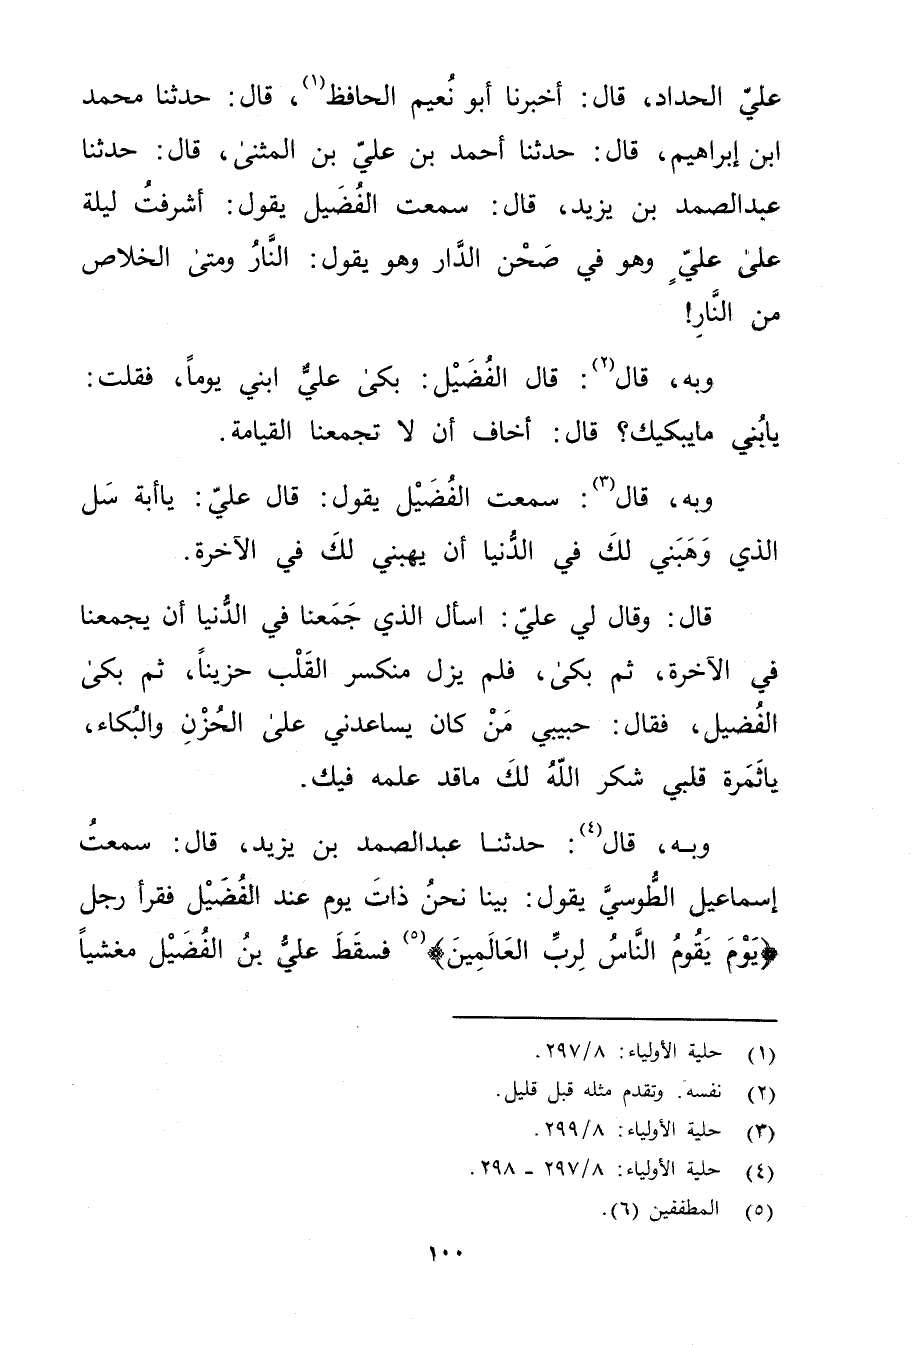 عليّ الحداد، قال: أخبرنا أبو نُعيم الحافظ(١)، قال: حدثنا محمد
ابن إبراهيم، قال: حدثنا أحمد بن عليّ بن المثنىٰ، قال: حدثنا
عبدالصمد بن يزيد، قال: سمعت الفُضَيل يقول: أشرفتُ ليلة
علىٰ عليّ وهو في صَحْن الدَّار وهو يقول: النَّارُ ومتىٰ الخلاص
من النَّارِ!
وبه، قال(٢): قال الفُضَيْل: بكىٰ عليٌّ ابني يوماً، فقلت:
يابُني مايبكيك؟ قال: أخاف أن لا تجمعنا القيامة.
وبه، قال(٣): سمعت الفُضَيْل يقول: قال عليّ: ياأبة سَل
الذي وَهَبَني لكَ في الدُّنيا أن يهبني لكَ في الآخرة.
قال: وقال لي عليّ: اسأل الذي جَمَعنا في الدُّنيا أن يجمعنا
في الآخرة، ثم بكىٰ، فلم يزل منكسر القَلْب حزيناً، ثم بكىٰ
الفُضيل، فقال: حبيبي مَنْ كان يساعدني علىٰ الحُزْنِ والبُكاء،
ياثَمَرة قلبي شكر اللّهُ لكَ ماقد علمه فيك.
وبه، قال(٤): حدثنا عبدالصمد بن يزيد، قال: سمعتُ
إسماعيل الطُّوسيَّ يقول: بينا نحنُ ذاتَ يوم عند الفُضَيْل فقرأ رجل
﴿يَوْمَ يَقُومُ النَّاسُ لِربِّ العَالَمِينَ﴾(٥) فسقَطَ عليُّ بنُ الفُضَيْل مغشياً
(١) حلية الأولياء: ٢٩٧/٨.
(٢) نفسه. وتقدم مثله قبل قليل.
(٣) حلية الأولياء: ٢٩٩/٨.
(٤) حلية الأولياء: ٢٩٧/٨ - ٢٩٨.
(٥) المطففين (٦).
١٠٠